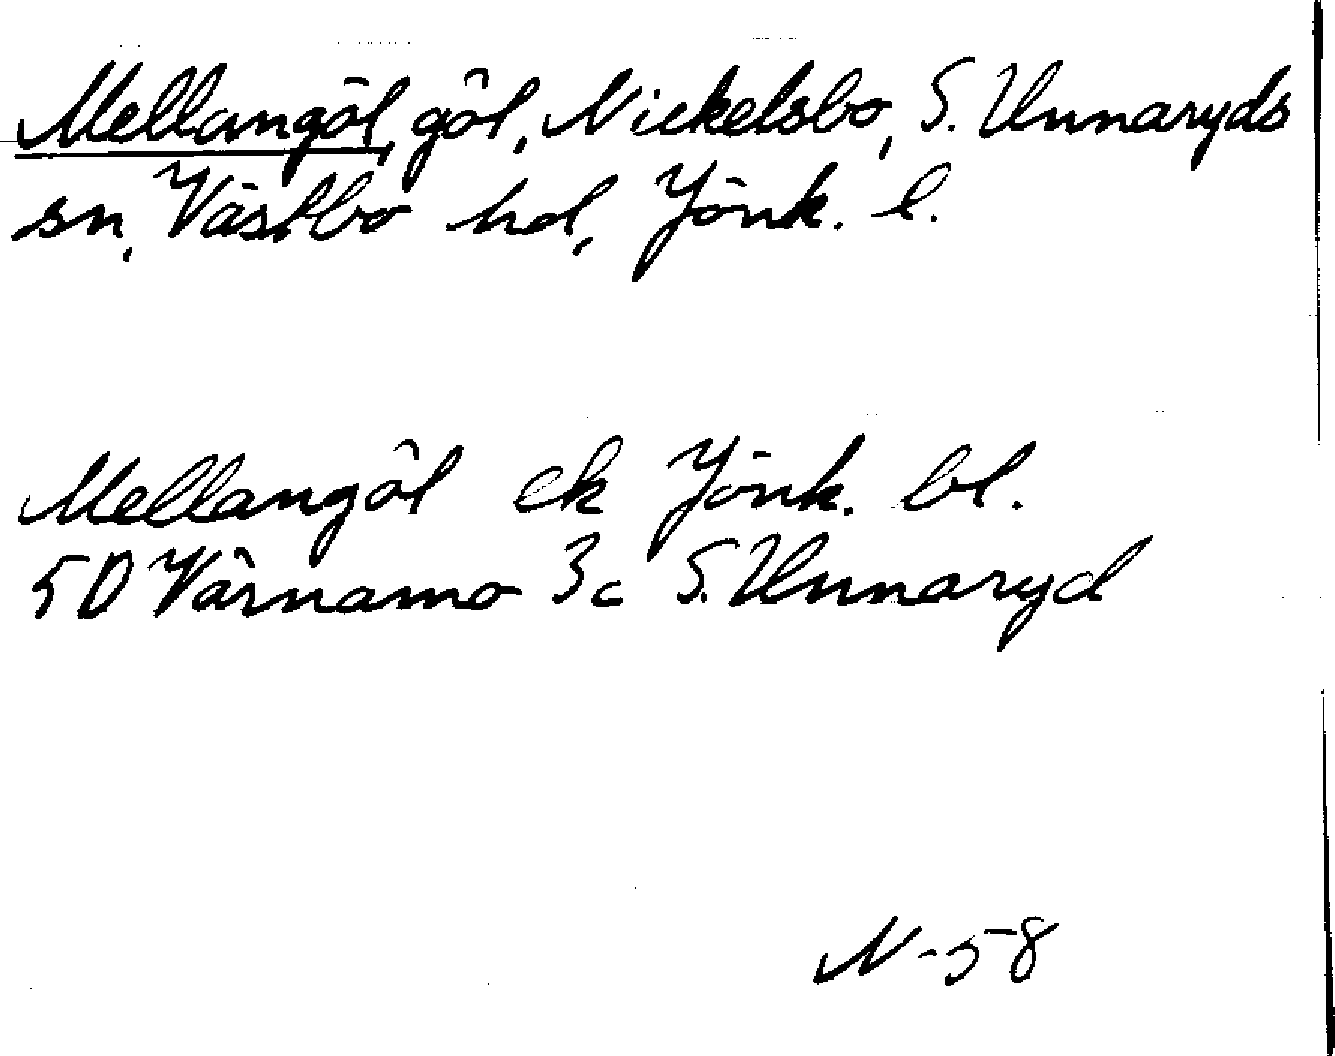 Mellangöl, göl, Nickelsbo, S. Unnaryds
sn, Västbo hd, Jönk. l.
Mellangöl ek Jönk. bl.
5D Värnamo 3c S. Unnaryd
N-58